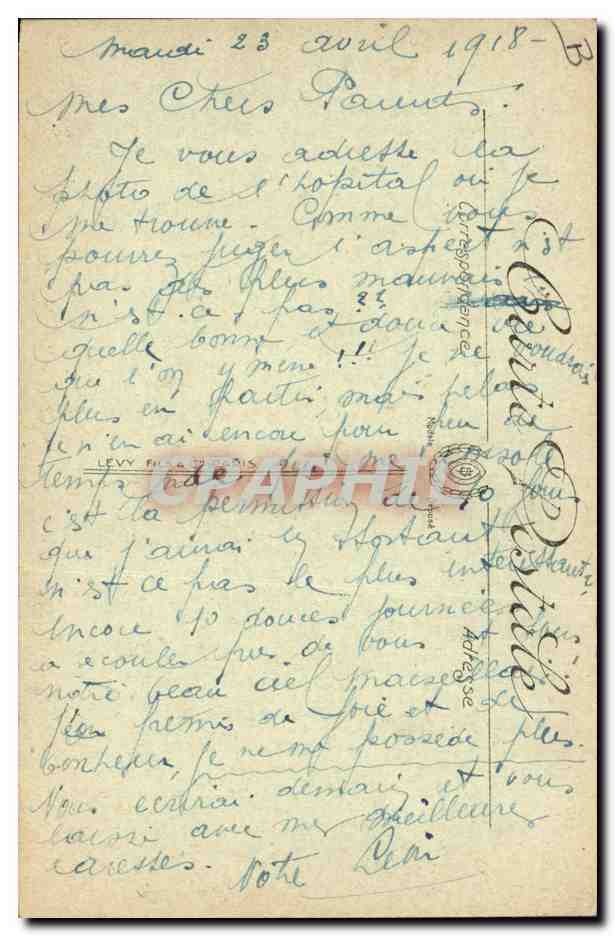 Mardi 23 avril 1918 -
B
Mes Chers Parents.
Je vous adresse la
photo de l'hôpital où je
me trouve. Comme vous
pouvez juger l'aspect n'est
pas des plus mauvais
n'est-ce pas ??
quelle bonne et douce vie
que l'on y mène!!! Je ne voudrais
plus en partir, mais hélas
je n'en ai encore pour peu de
temps, ce qui me console
c'est la permission de 10 jours
que j'aurai en sortant
n'est ce pas le plus intéressant,
encore 10 douces journées
à écouler près de vous et
notre beau ciel marseillais
J'en frémis de joie et de
bonheur, je ne me possède plus.
Vous écrirai demain et vous
laisse avec mes meilleures
caresses.
Votre
Carte Postale
Correspondance
Adresse
LEVY FILS & Cie PARIS
Modèle
déposé
CPAPHIL